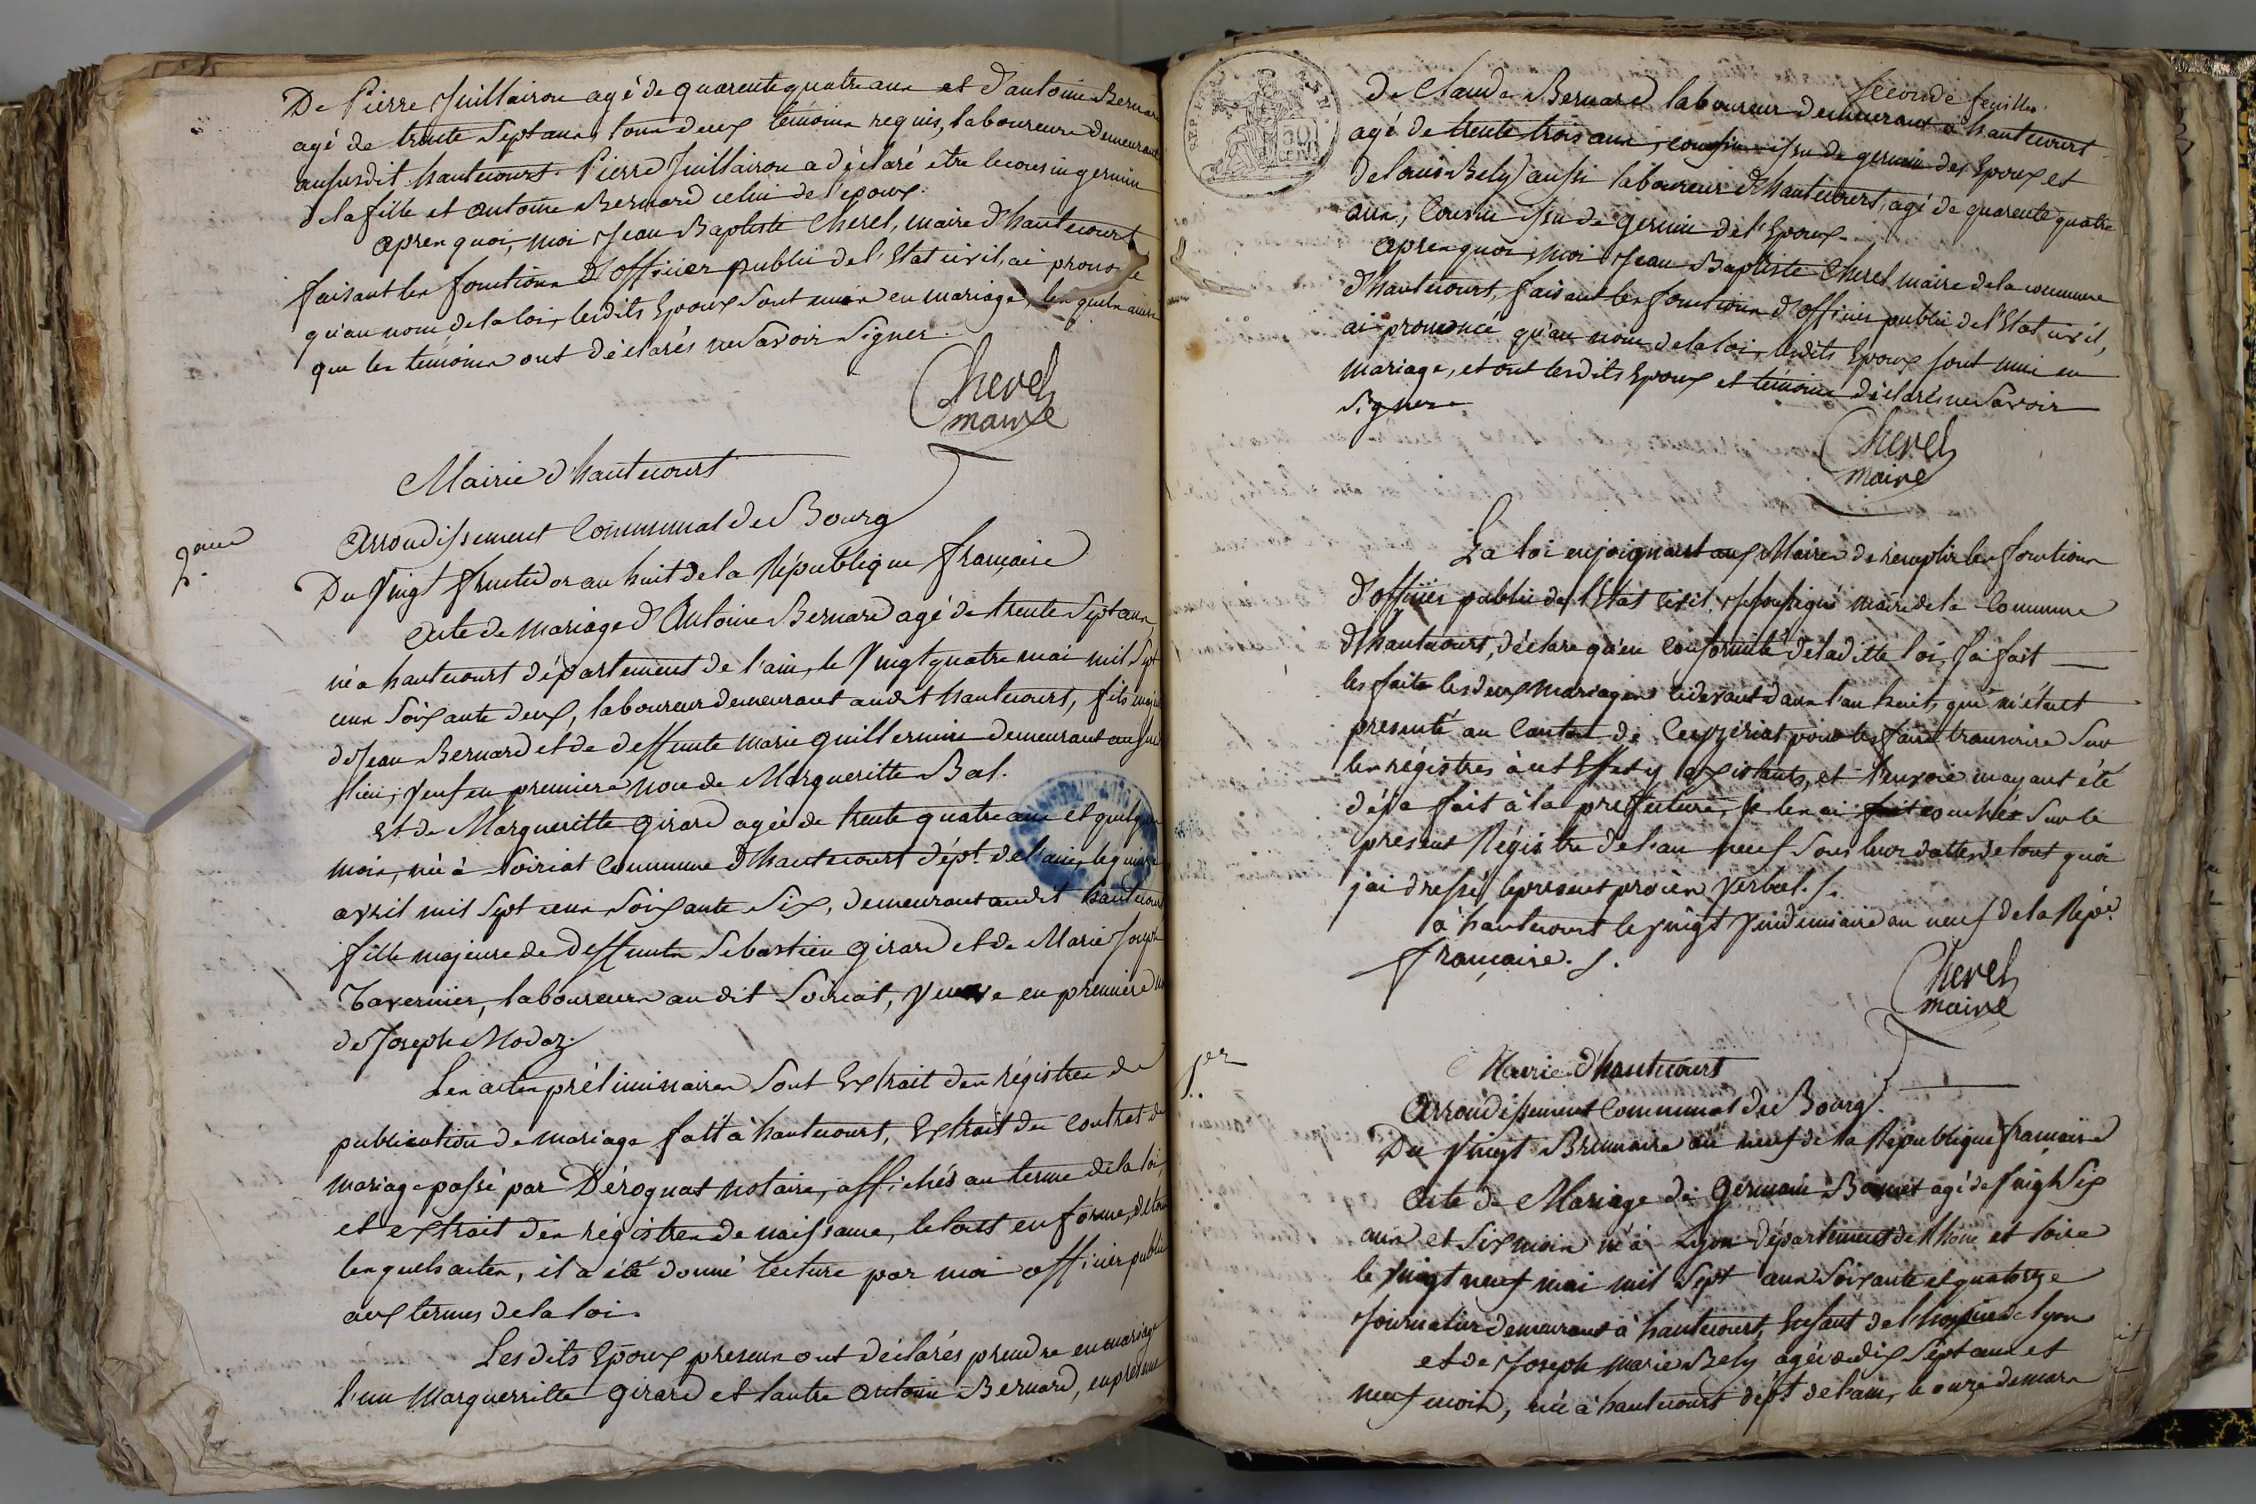 De Pierre Juillairon agé de quarente quatre ans et d'antoine Bernard
agé de trente Sept ans, tous deux témoins requis, laboureurs demeurant
au susdit hautecourt. Pierre Juillairon a déclaré etre le cousin germain
de la fille et antoine Bernard celui de l'epoux.
apres quoi, moi Jean Baptiste Cherel, maire d'hautecourt
faisant les fonctions d'officier public de l'Etat civil, ai prononcé
qu'au nom de la loi, lesdits Epoux sont unis en mariage, lesquels ainsi
que les témoins ont déclarés ne Savoir Signer.
Cherel
maire
Mairie d'hautecourt
2eme
arrondissement Communal de Bourg
Du Vingt fructidor an huit de la République française
acte de mariage d'Antoine Bernard agé de trente Sept ans
né a hautecourt département de l'ain, le Vingt quatre mai mil Sept
cens Soixante deux, laboureur demeurant audit hautecourt, fils majeur
de Jean Bernard et de deffunte marie guillermin demeurant au susdit
lieu, Veuf en premiere noce de Margueritte Bal.
et de Margueritte girard agée de trente quatre ans et quelques
mois, née à Soiriat Commune d'hautecourt dépt. de l'ain, le quinze
avril mil Sept cens Soixante Six, demeurant audit hautecourt
fille majeure de deffunts Sebastien girard et de Marie Joseph
Tavernier, laboureurs audit Soiriat, Veuve en premiere noce
de Joseph Modaz.
Les actes préliminaires Sont Extrait des régistres de
publication de mariage fait à hautecourt, Extrait du Contrat de
mariage passé par Dérognat notaire, affichés au terme de la loi,
et extrait des régistres de naissance, le tout en forme, de tous
lesquels actes, il a été donné lecture par moi officier public
aux termes de la loi.
Les dits Epoux présens ont déclarés prendre en mariage
l'un Marguerritte girard et l'autre antoine Bernard, en présence
Seconde feuille.
De Claude Bernard laboureur demeurant à hautecourt
agé de trente trois ans, cousin issu de germain des Epoux et
de louis Bely aussi laboureur d'hautecourt, agé de quarente quatre
ans, Cousin issu de germain de l'Epoux.
apres quoi, moi Jean Baptiste Cherel maire de la commune
d'hautecourt, faisant les fonctions d'officier public de l'Etat civil,
ai prononcé qu'au nom de la loi, lesdits Epoux sont unis en
mariage, et ont lesdits Epoux et témoins déclarés ne Savoir
Signer.
Cherel
maire
La loi enjoignant aux Maires de remplir les fonctions
d'officier public de l'Etat Civil. Je soussigné maire de la Commune
d'hautecourt, déclare qu'en conformité de la ditte loi, j'ai fait
les faits les deux mariages cidevant dans l'an huit, que m'étant
presenté au Canton de Ceyzeriat pour les faire transcrire Sur
les régistres à cet Effet y existants, et l'envoie m'ayant été
déja fait à la prefecture, je les ai couchés Sur le
présent Régistre de l'an neuf sous leur dattes de tout quoi
j'ai dressé le present procès verbal.
à hautecourt le vingt Vendemiaire an neuf de la Répe.
française.
Cherel
maire
1er
Mairie d'hautecourt
Arrondissement Communal de Bourg.
Du Vingt Brumaire an neuf de la République française
Acte de Mariage de Germain agé de Vingt Six
ans et Six mois né à Lyon département de Rhone et loire
le Vingt neuf mai mil Sept cens Soixante et quatorze
Journalier demeurant à hautecourt, Enfant de l'hospice de Lyon
et de Joseph Marie Bely agée de dix Sept ans et
neuf mois, née à hautecourt dépt. de l'ain, le onze de mars